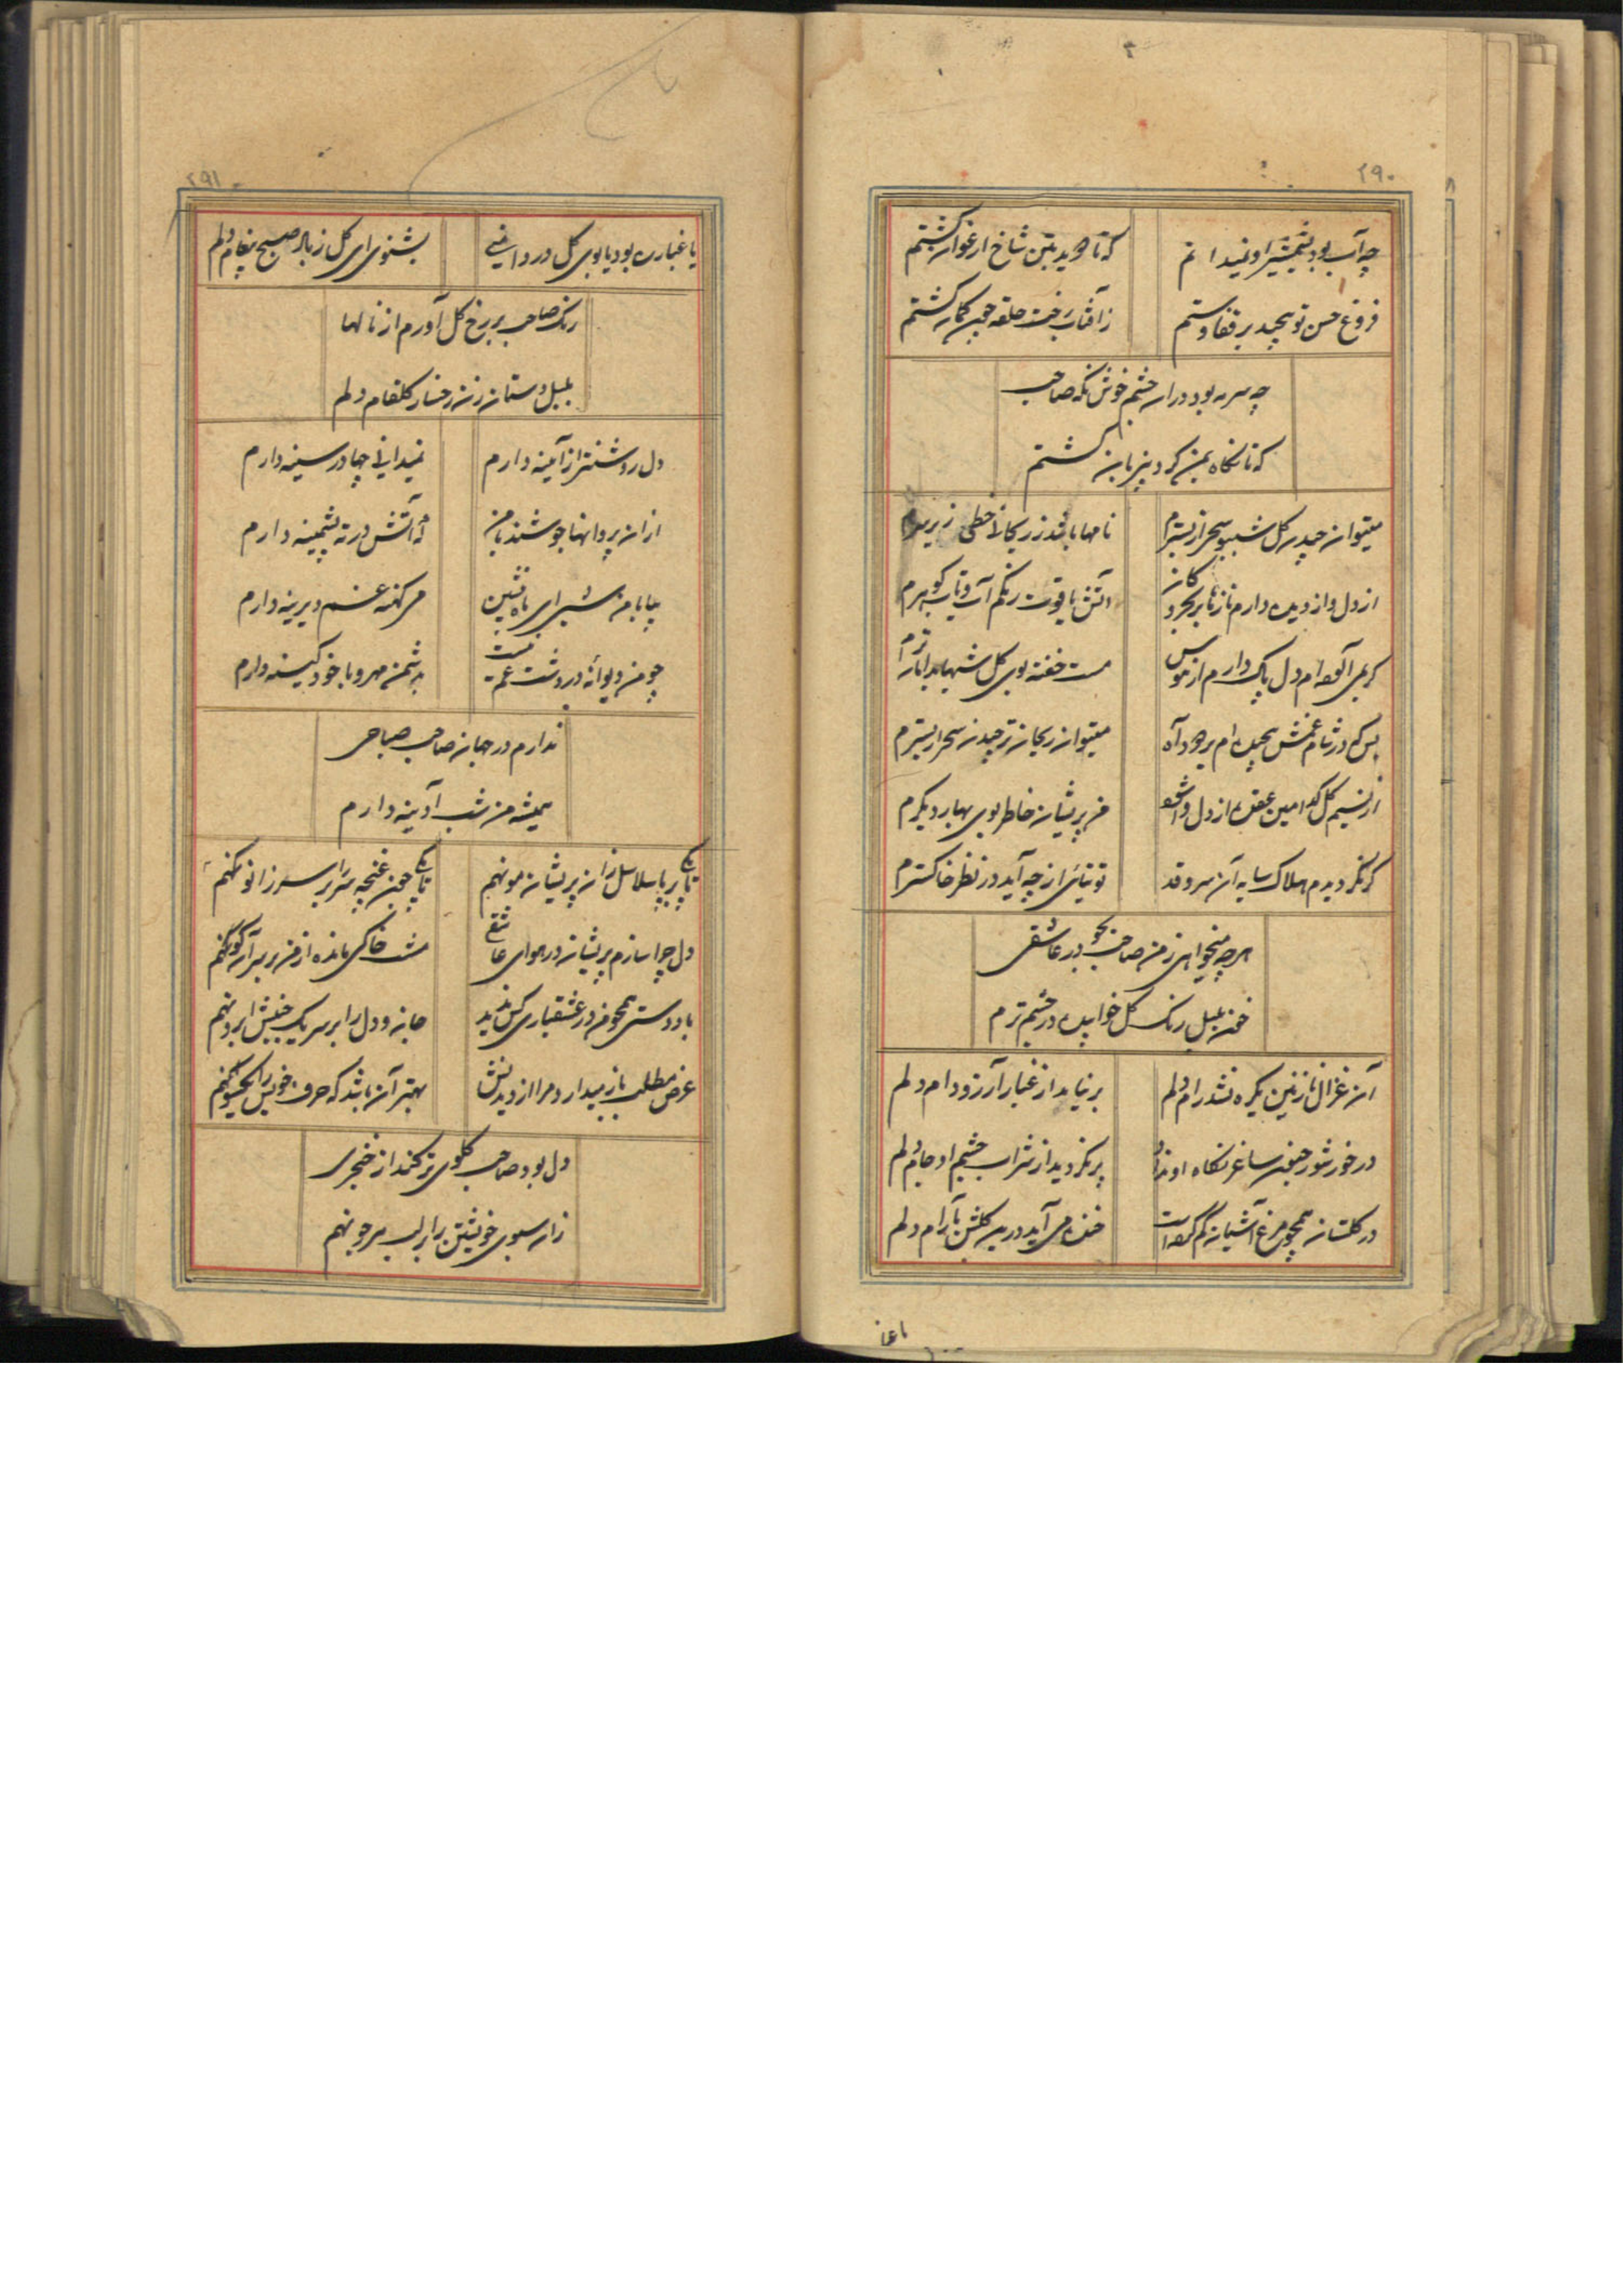 ۲۹۰
چه آب بود بشمشیر او نمیدانم
که تا دوید بتن شاخ ارغوان گشتم
فروغ حسن تو پیچید بر قفا دستم
ز آفتاب رخت حلقه چون کمان گشتم
چه سرمه بود در آن چشم خوش نگه صاحب
که تا نگاه بمن کرد بیزبان گشتم
میتوان چیدن گل شب بو سحر از بسترم
نامها باشد ز ریحان خطی زیر
از دل و از دیده دارم نازها بر بحر و کان
آتش یاقوت رنگم آب و تاب گوهرم
گر می آلوده ام دل پاک دارم از هوس
مست خفته بوی گل شبها
بس که در شام غمش پیچیده ام بر دود آه
میتوان ریحان تر چیدن سحر از بسترم
از نسیم گل کدامین عقده از دل وا شود
من پریشان خاطر بوی بهار دیگرم
گر نگردیدم هلاک سایه آن سرو قد
توتیائی از چه آید در نظر خاکسترم
هر چه میخواهی ز من صاحب بجو در عاشقی
خون بلبل رنگ گل خوابیده در چشم ترم
آن غزال نازنین یکره نشد رام دلم
بر نیامد از غبار آرزو دام دلم
در خور شور جنون ساغر نگاه او نداد
پر نگردید از شراب چشم او جام دلم
در گلستان همچو مرغ آشیان گم کرده است
خنده می آید درین گلشن بآرام دلم
یا غبا
۲۹۱
یا غباری بود یا بوی گل در دامنی
بشنوی ای گل ز باد صبح پیغام دلم
رنگ صاحب بر رخ گل آورم از نالها
بلبل دستان زن رخسار گلفام دلم
دل روشنتر از آئینه دارم
نمیدانی چها در سینه دارم
از آن پروانها جوشند با من
که آتش در ته پشمینه دارم
بیا با من نشین ای باده
می کهنه غم دیرینه دارم
چو من دیوانه در دشت غمت نیست
بدشمن مهر و با خود کینه دارم
ندارم در جهان صاحب صباحی
همیشه من شب آدینه دارم
تا بکی بر پا سلاسل زان پریشان مو نهم
تا بکی چون غنچه سر را بر سر زانو نهم
دل چرا سازم پریشان در هوای عاشقی
مشت خاکی مانده از من بر سر آن کو نهم
با دو دستی همچو من در عشقبازی کس ندید
جان و دل را بر سر یک جنبش ابرو نهم
عرض مطلب باز میدارد مرا از دیدنش
بهتر آن باشد که حرف خویش را یکسو نهم
دل بود صاحب گلوی تر کند از خنجری
زان سبوی خویشتن را بر لب هر جو نهم